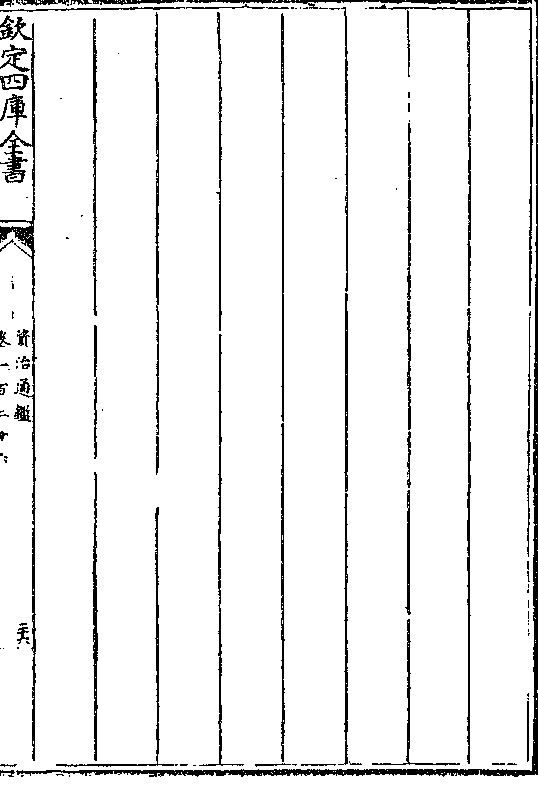 欽定四庫全書
資治通鑑
卷一百二十